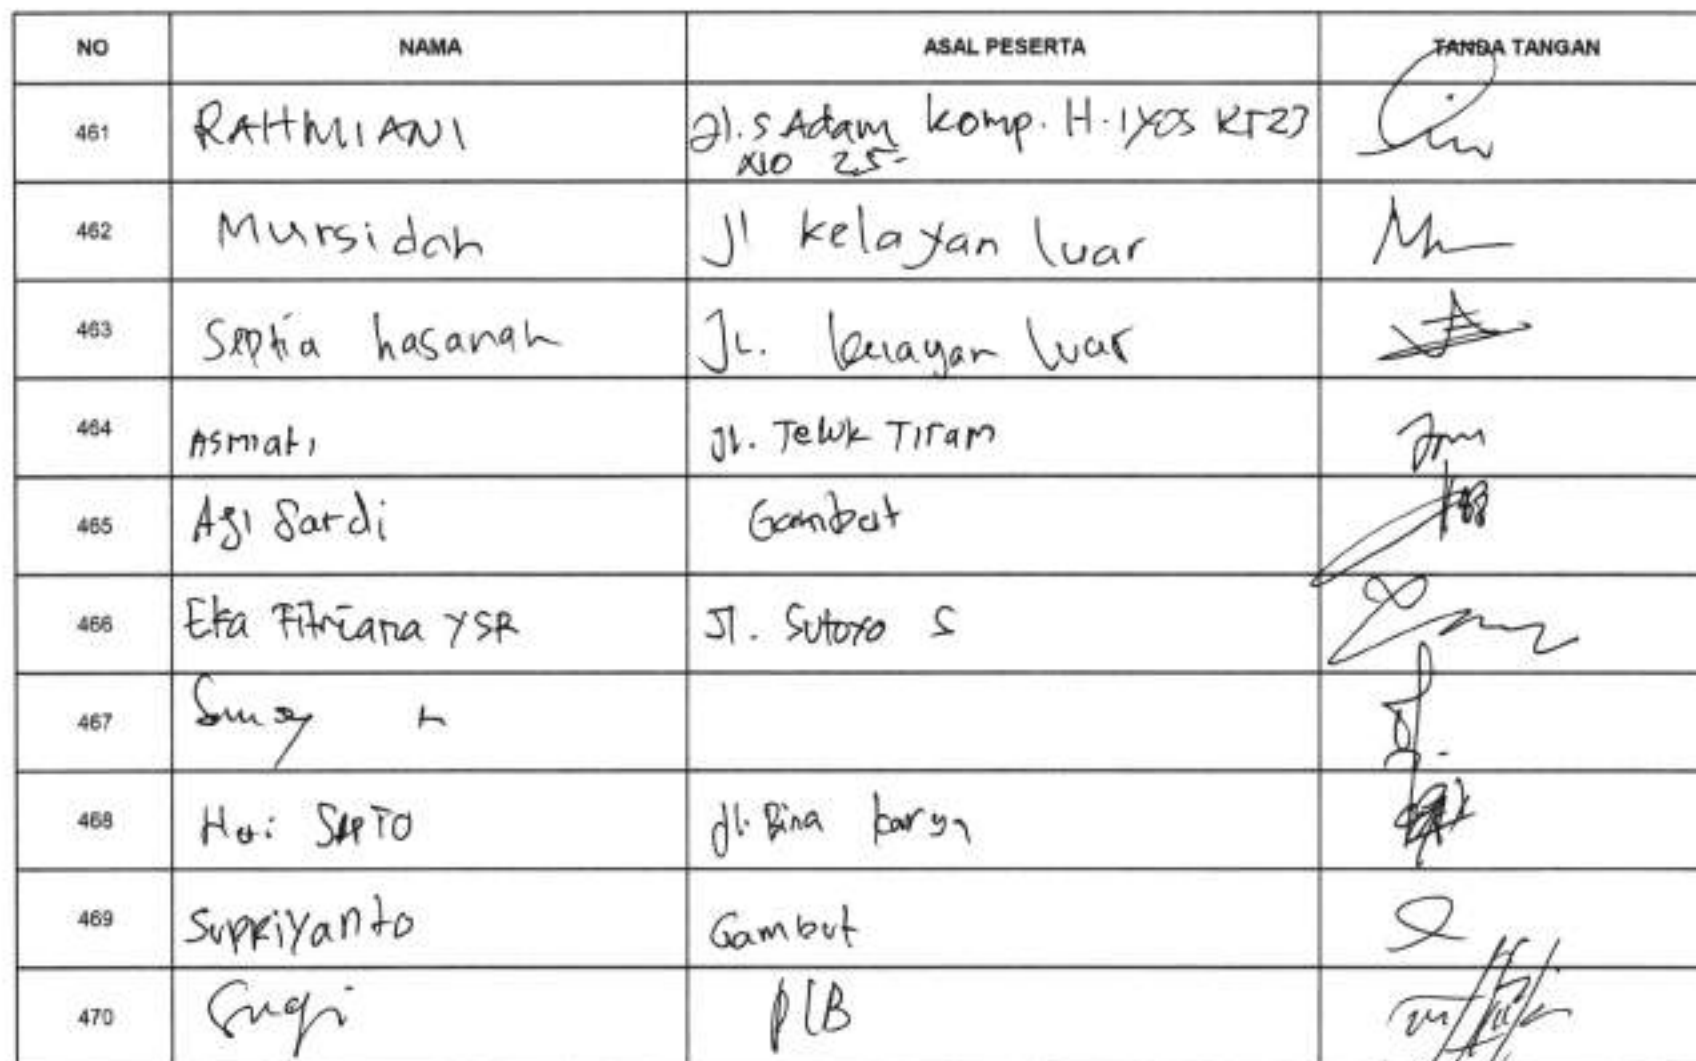 NO NAMA ASAL PESERTA TANDA TANGAN
461 RAHMIANI Jl. S Adam komp. H. IYOS RT 23
NO 25
462 Mursidah Jl kelayan luar
463 Septia hasanah JL. kelayan luar
464 Asmiati Jl. Teluk Tiram
465 Agi Sardi Gambut
466 Eka Fitriana YSR Jl. Sutoyo S
467
468 Heri SAPTO Jl. Bina karya
469 Supriyanto Gambut
470 Sugi PLB